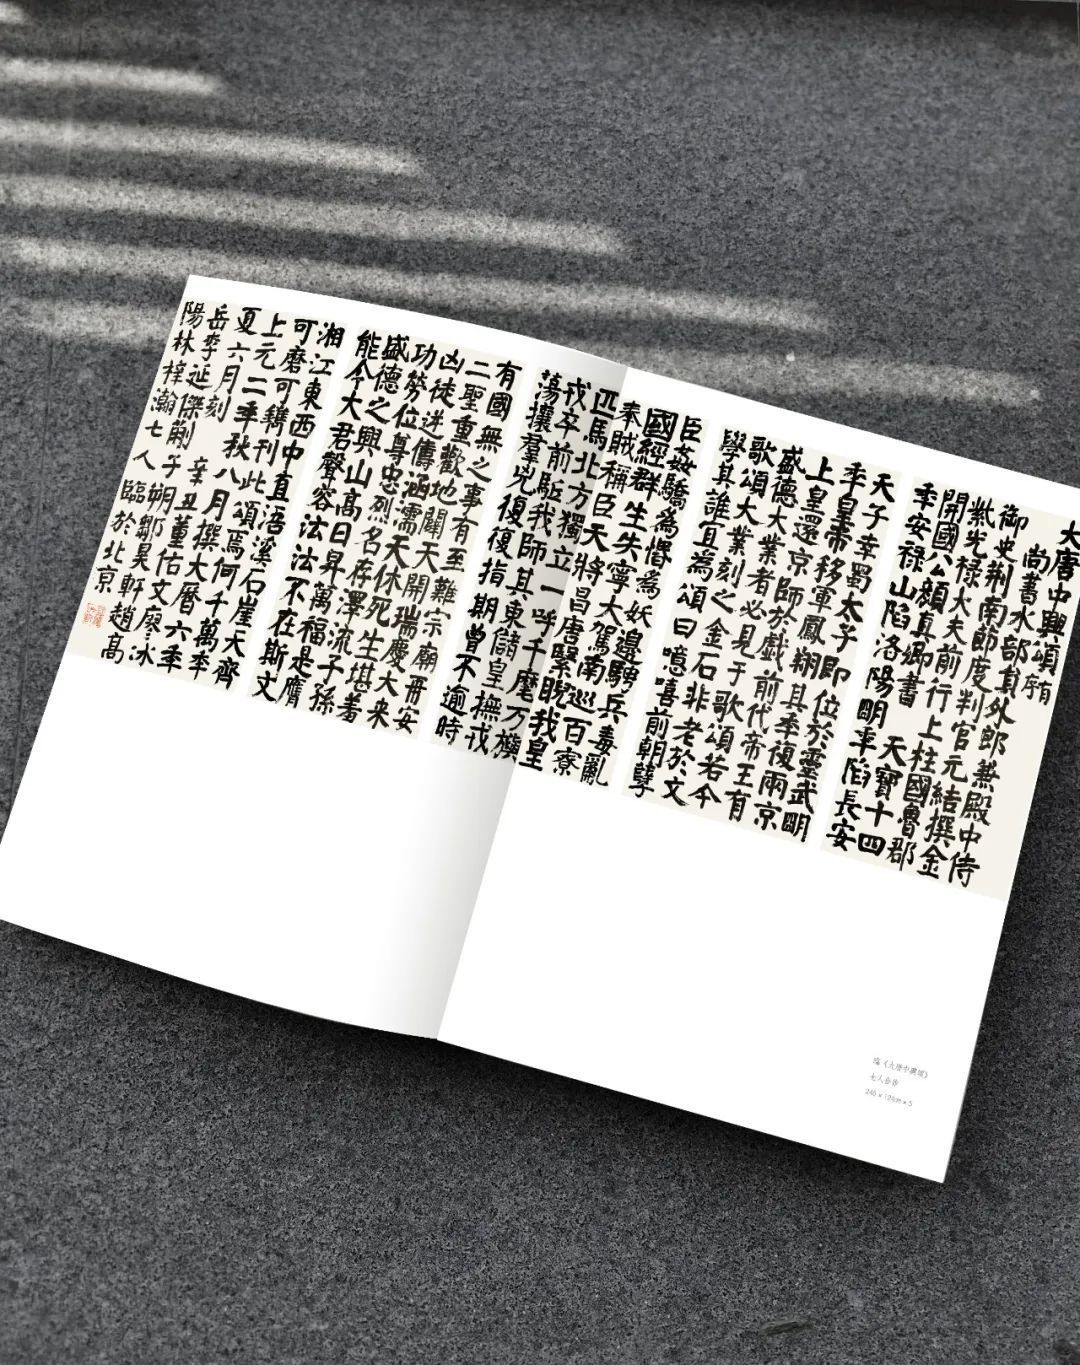 大唐中興頌有序
尚書水部員外郎兼殿中侍
御史荆南節度判官元結撰金
紫光禄大夫前行上柱國魯郡
開國公顏真卿書 天寶十四
年安禄山陷洛陽明年陷長安
天子幸蜀太子即位於靈武明
年皇帝移軍鳳翔其年復兩京
上皇還京師於戲前代帝王有
盛德大業者必見于歌頌若今
歌頌大業刻之金石非老於文
學其誰宜為頌曰噫嘻前朝孽
臣姦驕為惛為妖邊騁兵毒亂
國經群生失寧大駕南巡百寮
奉賊稱臣天將昌唐緊睨我皇
匹馬北方獨立一呼千麾万旟
戎卒前駈我師其東儲皇撫戎
蕩攘羣兇復復指期曾不逾時
有國無之事有至難宗廟再安
二聖重歡地闢天開瑞慶大来
凶徒逆儔涵濡天休死生堪羞
功勞位尊忠烈名存澤流子孫
盛德之興山高日昇萬福是膺
能令大君聲容法法不在斯文
湘江東西中直浯溪石崖天齊
可磨可鐫刊此頌焉何千萬年
上元二年秋八月撰大曆六年
夏六月刻 辛丑董佑文廖冰
岳李延傑荊子朔鄒昊軒趙高
陽林梓瀚七人臨於北京
臨《大唐中興頌》
七人合作